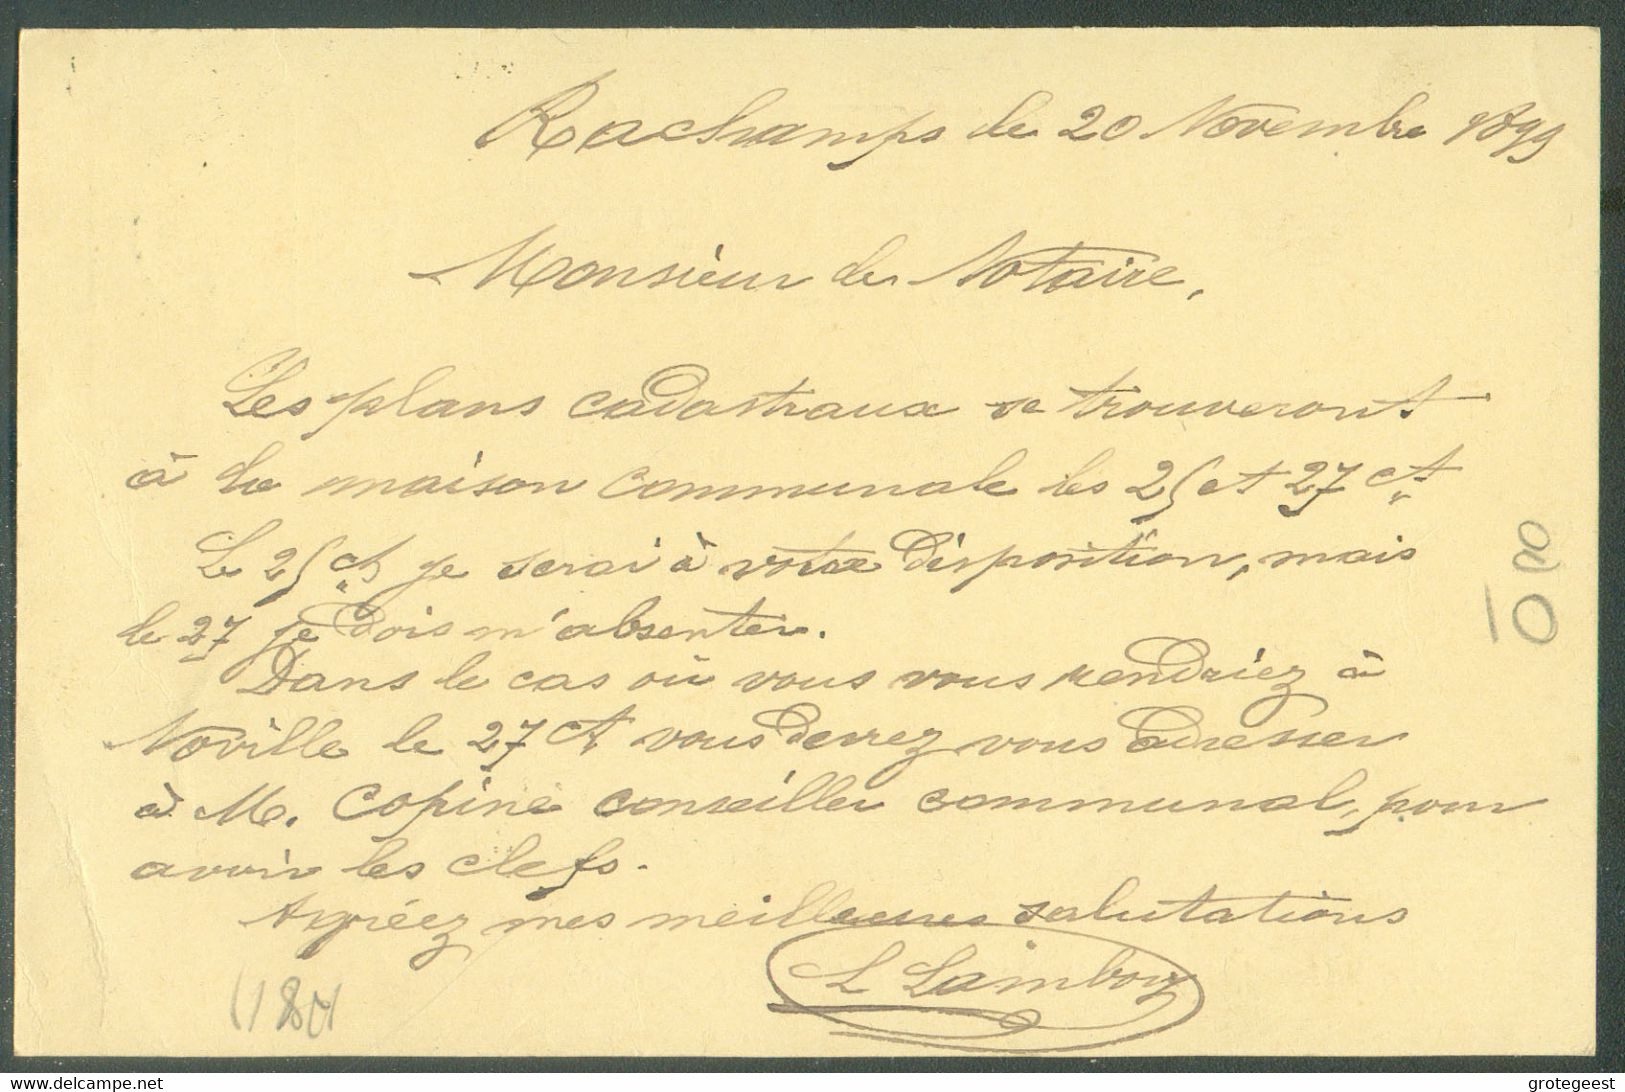 Rachamps le 20 Novembre 1899
Monsieur le Notaire,
Les plans cadastraux se trouveront
à la maison communale les 25 et 27 ct.
Le 25 ct je serai à votre disposition, mais
le 27 je dois m'absenter.
Dans le cas où vous vous rendriez à
Noville le 27 ct vous devrez vous adresser
à M. Copine conseiller communal, pour
avoir les clefs.
Agréez mes meilleures salutations
L Lambory
delcampe.net
grotegeest